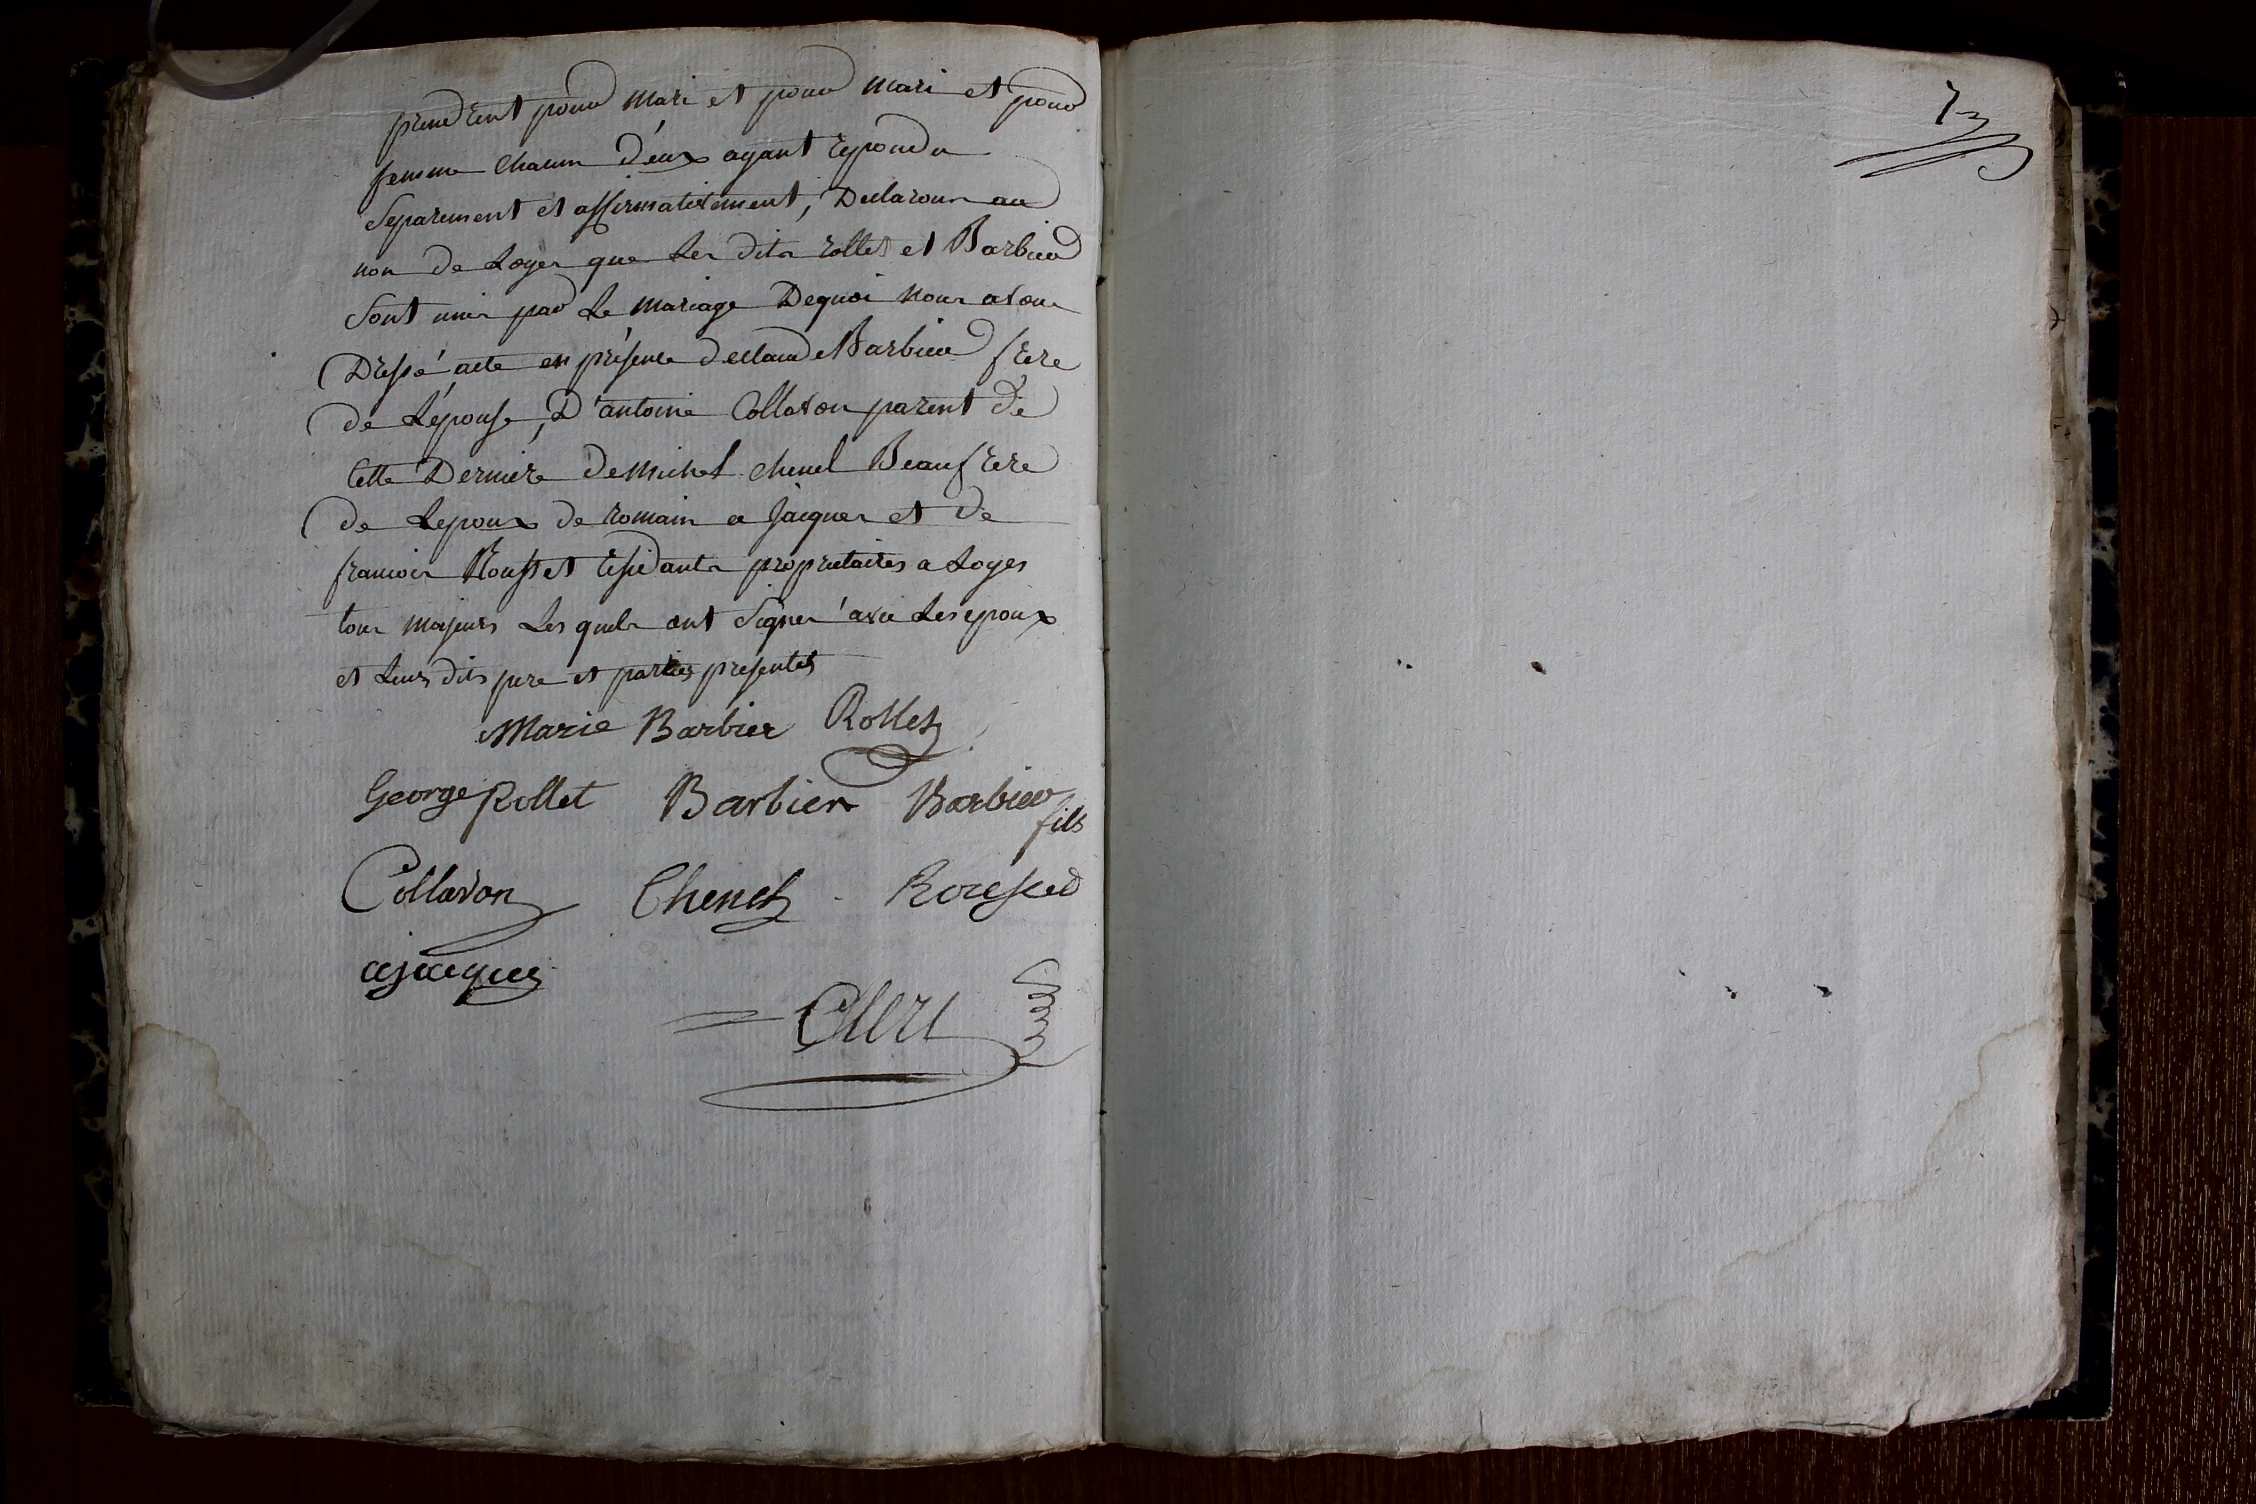 prendrent pour mari et pour mari et pour
femme chacun d'eux ayant repondu
Separement et affirmativement, Declarons au
non de Loyer que Les dits rollet et Barbier
Sont unis par Le mariage Dequoi Nous avons
Dressé acte en présence declaude Barbier frere
de L'épouse, D'antoine Collavon parent de
Cette Derniere de Michel Chenel Beaufrere
de Lepoux de romain a Jaques et de
francois Rousset residants proprietaires a Loyes
tous majeurs Les quels ont Signer avec Les epoux
et Leurs dits pere et parties presentes
Marie Barbier Rollet
George Rollet Barbier Barbier
fils
Collavon Chenel Rousset
ajacques
Clerc
73